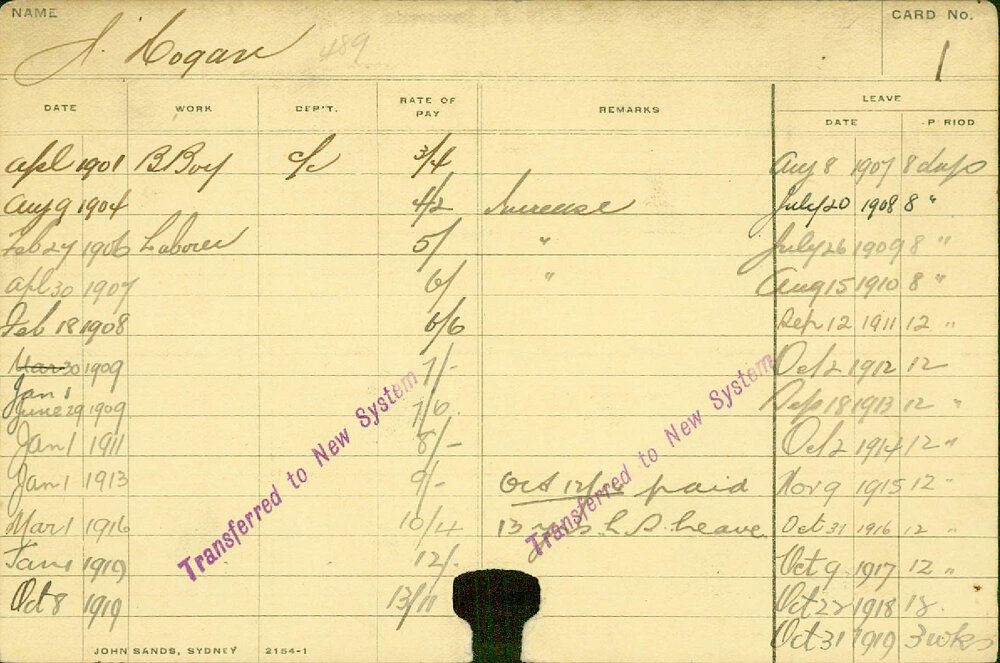 NAME CARD No.
J. Hogan 489 1
DATE WORK DEP'T. RATE OF PAY REMARKS LEAVE
DATE PERIOD
Apl 1901 B Boy c/c 3/4 Aug 8 1907 8 days
Aug 9 1904 4/2 Increase July 20 1908 8 "
Feb 27 1906 Laborer 5/ " July 26 1909 8 "
Apl 30 1907 6/ " Aug 15 1910 8 "
Feb 18 1908 6/6 Sep 12 1911 12 "
Mar 30 1909 7/- Oct 2 1912 12
Jan 1
June 29 1909 7/6 Sep 18 1913 12 "
Jan 1 1911 8/- Oct 2 1914 12 "
Jan 1 1913 9/- Oct paid Nov 9 1915 12 "
Mar 1 1916 10/4 13 L. S. Leave Oct 31 1916 12 "
Jan 1 1919 12/- Oct 9 1917 12 "
Oct 8 1919 13/11 Oct 22 1918 12
Oct 31 1919 3 wks
Transferred to New System
Transferred to New System
JOHN SANDS, SYDNEY 2154-1